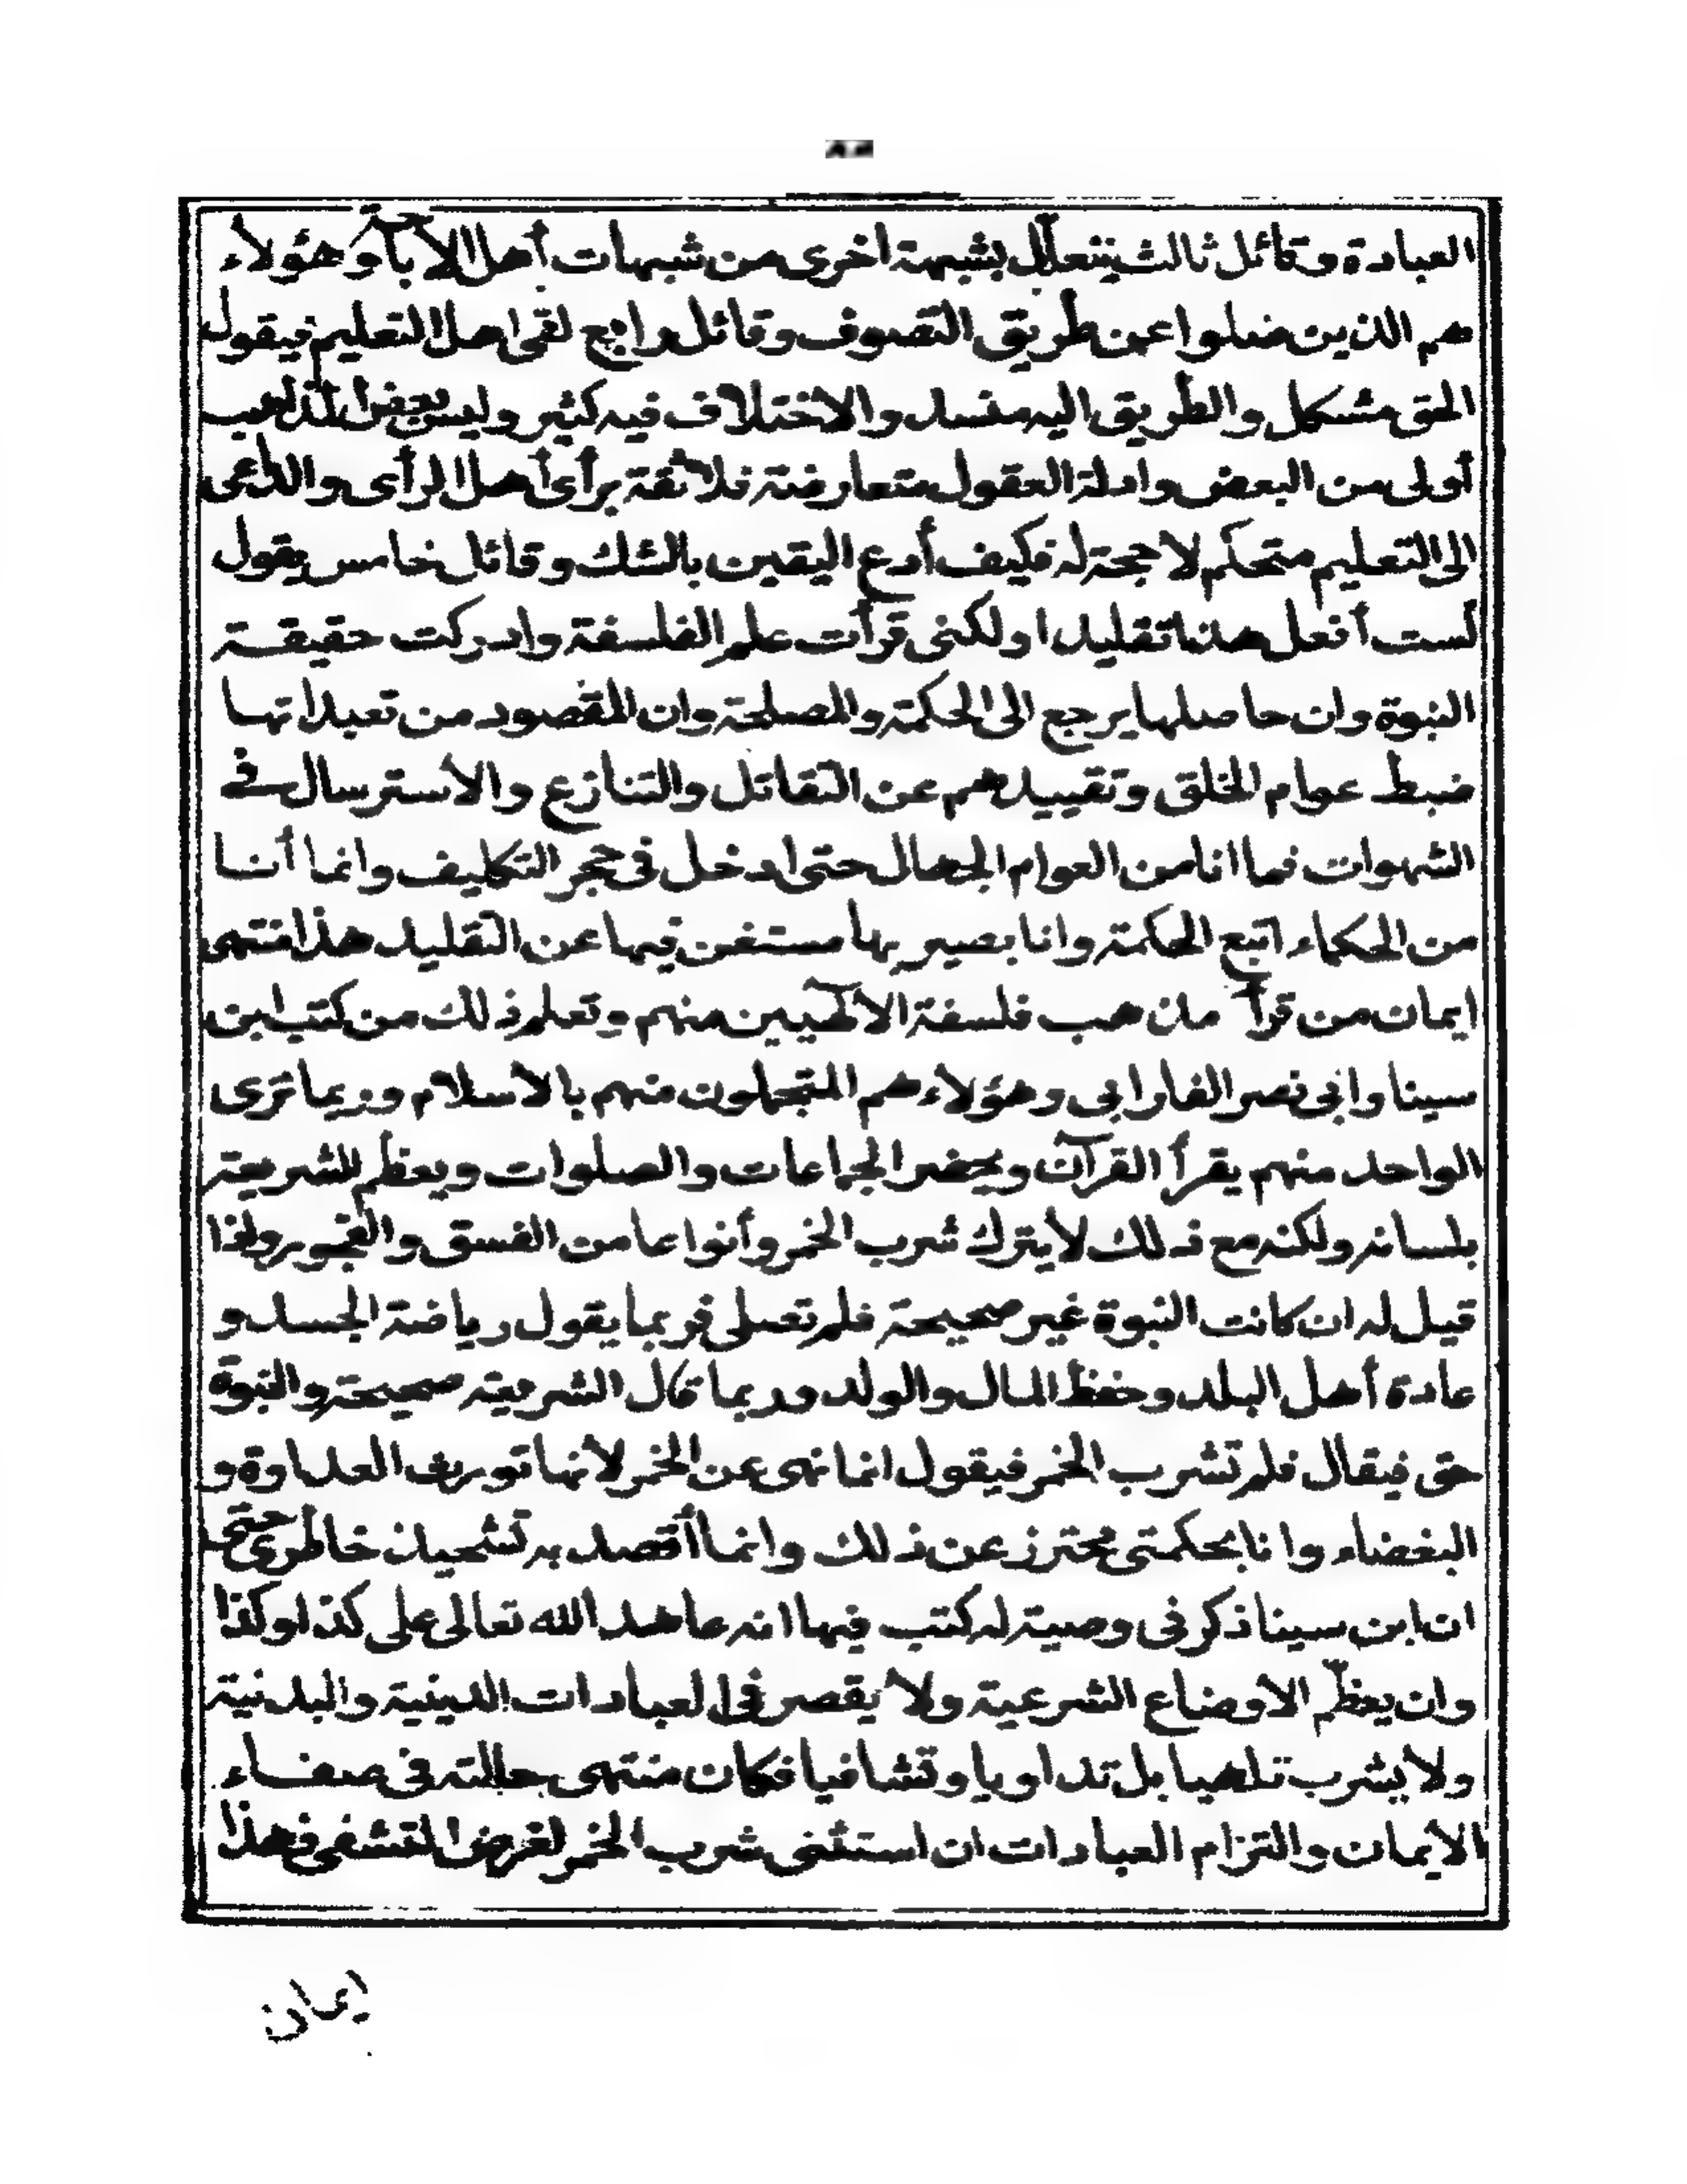 العبادة وقائل ثالث يتعلّل بشبهة اخرى من شبهات أهل الاباحة وهؤلاء
هم الذين ضلوا عن طريق التصوف وقائل رابع لقى اهل التعليم فيقول
الحق مشكل والطريق اليه منسد والاختلاف فيه كثير وليس بعض المذاهب
أولى من البعض وادلة العقول متعارضة فلا ثقة برأى أهل الرأى والداعى
الى التعليم متحكّم لا حجة له فكيف أدع اليقين بالشك وقائل خامس يقول
لست أفعل هذا تقليدا ولكنى قرأت علم الفلسفة وادركت حقيقة
النبوة وان حاصلها يرجع الى الحكمة والمصلحة وان المقصود من تعبداتها
ضبط عوام الخلق وتقييدهم عن التقاتل والتنازع والأسترسال فى
الشهوات فما انا من العوام الجهال حتى ادخل فى حجر التكليف وانما أنا
من الحكماء اتبع الحكمة وانا بصير بها مستغن فيها عن التقليد هذا منتهى
ايمان من قرأ مذهب فلسفة الالٓهيين منهم وتعلم ذلك من كتب ابن
سينا وابى نصر الفارابى وهؤلاء هم المتجملون منهم بالأسلام وربما ترى
الواحد منهم يقرأ القرآن ويحضر الجماعات والصلوات ويعظم للشريعة
بلسانه ولكنه مع ذلك لأيترك شرب الخمر وأنواعا من الفسق والفجور واذا
قيل له ان كانت النبوة غير صحيحة فلم تصلى فربما يقول رياضة الجسد و
عادة أهل البلد وحفظ المال والولد وربما قال الشريعة صحيحة والنبوة
حق فيقال فلم تشرب الخمر فيقول انما نهى عن الخمر لأنها تورث العداوة و
البغضاء وانا بحكمتى محترز عن ذلك وانما أقصد به تشحيذ خاطرى حتى
ان ابن سينا ذكر فى وصية له كتب فيها انه عاهد الله تعالى على كذا وكذا
وان يعظّم الاوضاع الشرعية ولا يقصر فى العبادات الدينية والبدنية
ولا يشرب تلهيا بل تداويا وتشافيا فكان منتهى حالته فى صفاء
الأيمان والتزام العبادات ان استثنى شرب الخمر لغرض التشفى فهذا
ايمان